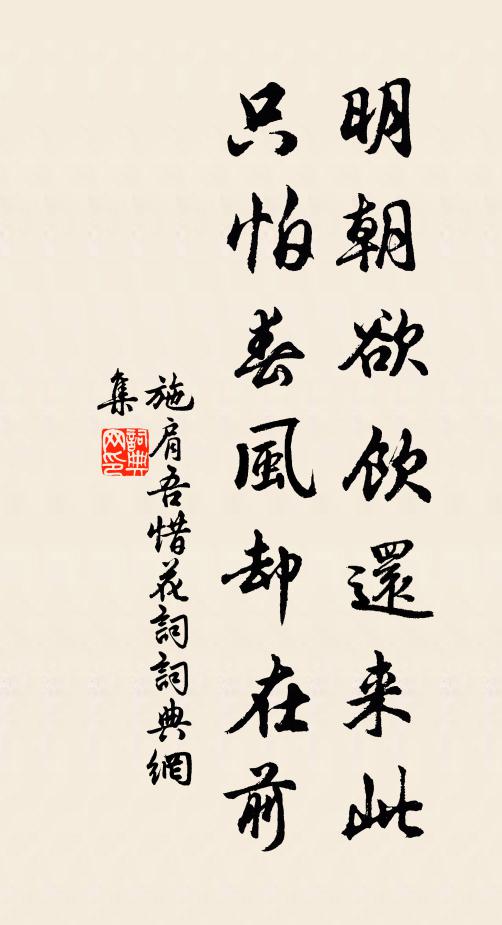 明朝欲飲還来此
只怕春風却在前
施肩吾惜花詞詞典網
集
詞典网印